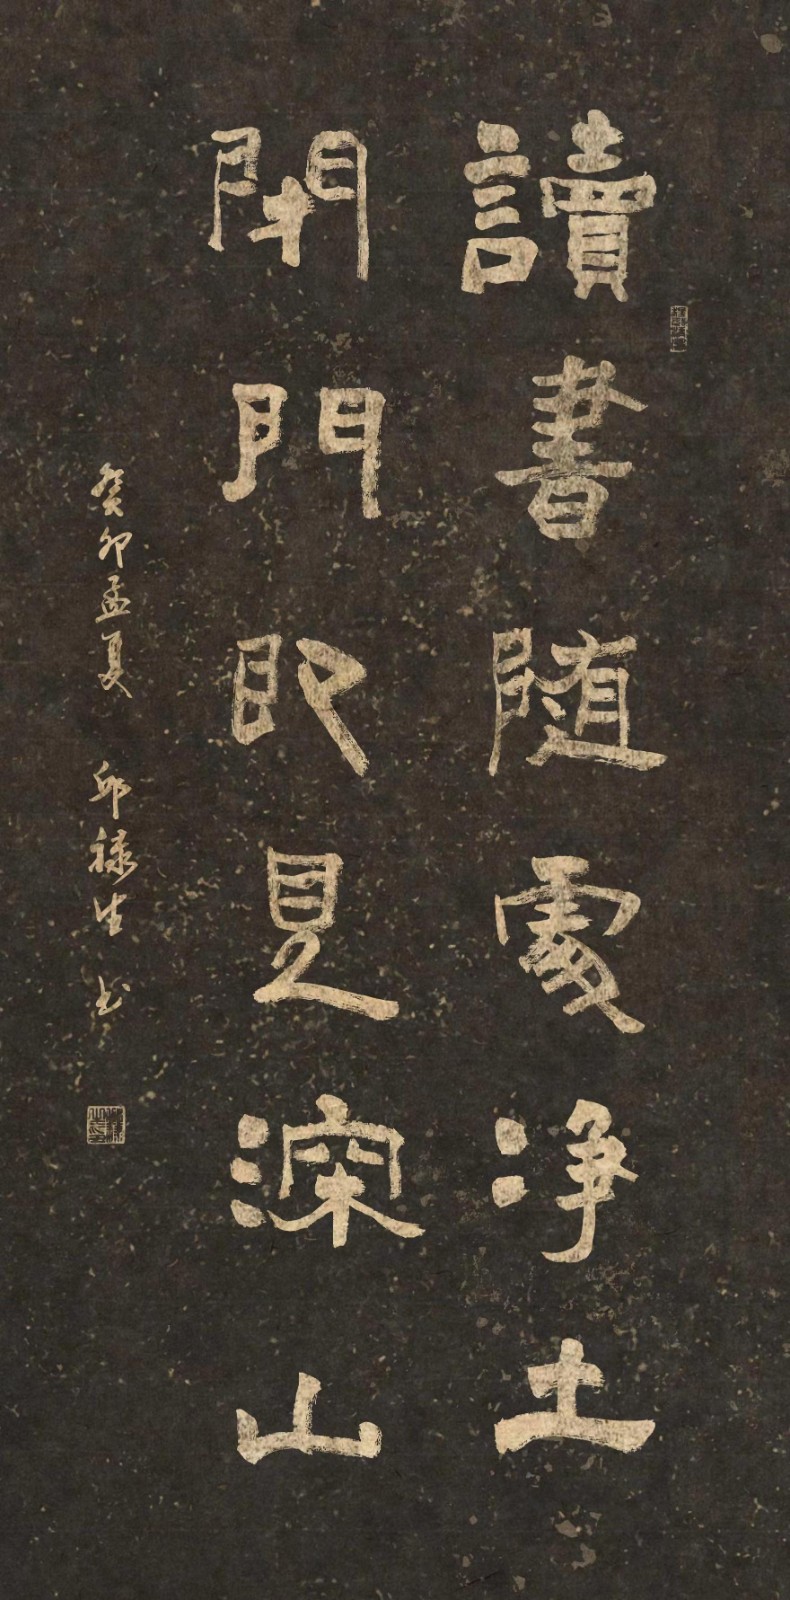 讀書隨處净土
閉門即見深山
癸卯孟夏 邱祿生 书